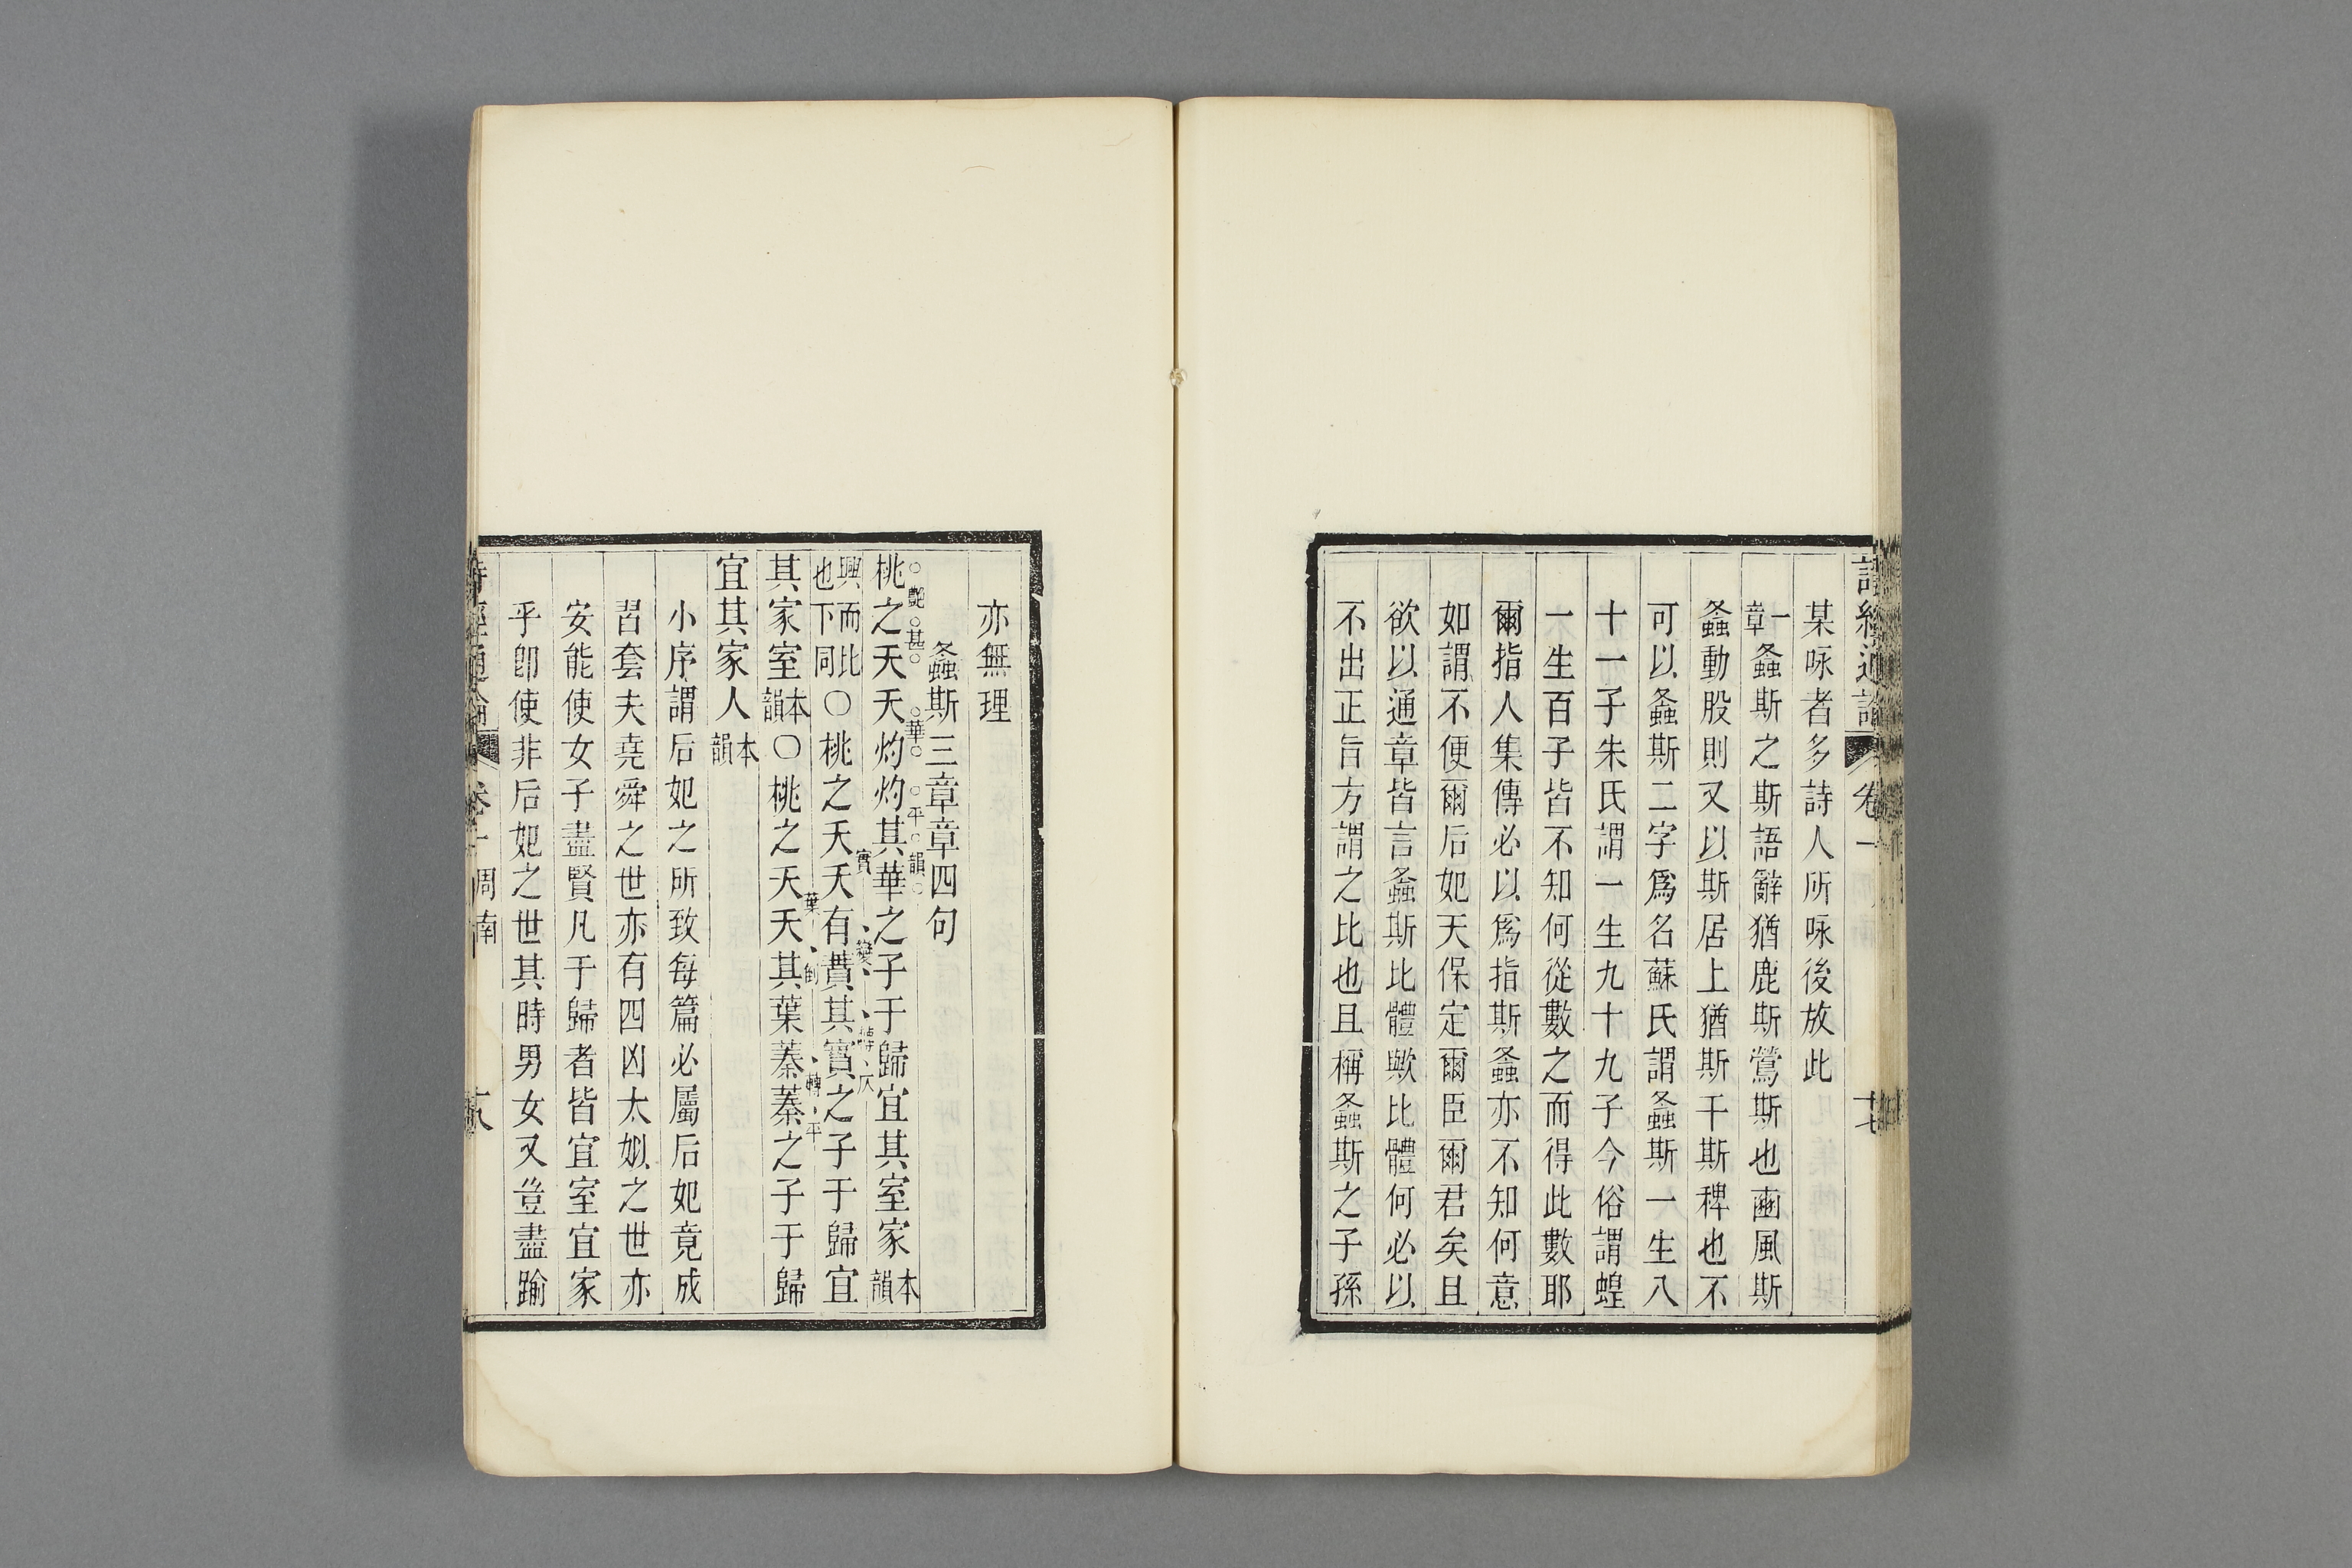 詩經通論 卷一 十七
某咏者多詩人所咏後放此
一章螽斯之斯語辭猶鹿斯鶯斯也豳風斯
螽動股則又以斯居上猶斯干斯稗也不
可以螽斯二字爲名蘇氏謂螽斯一生八
十一子朱氏謂一生九十九子今俗謂蝗
一生百子皆不知何從數之而得此數耶
爾指人集傳必以爲指斯螽亦不知何意
如謂不便爾后妃天保定爾臣爾君矣且
欲以通章皆言螽斯比體歟比體何必以
不出正旨方謂之比也且稱螽斯之子孫
亦無理
螽斯三章章四句
桃之夭夭灼灼其華之子于歸宜其室家本韻
興而比也下同〇桃之夭夭有蕡其實之子于歸宜
其家室本韻〇桃之夭夭其葉蓁蓁之子于歸
宜其家人本韻
小序謂后妃之所致每篇必屬后妃竟成
習套夫堯舜之世亦有四凶太姒之世亦
安能使女子盡賢凡于歸者皆宜室宜家
乎卽使非后妃之世其時男女又豈盡踰
詩經通論 卷一 周南 十八